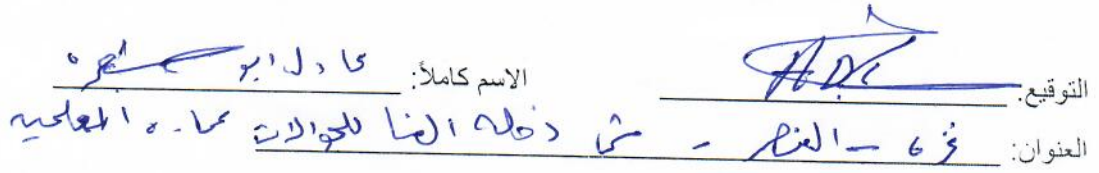 التوقيع: الاسم كاملاً: عادل ابو
العنوان: غزة - النصر - للجوالات عمارة المعلمين